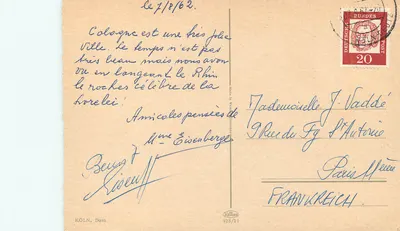 le 7/8/62.
Cologne est une très jolie
ville. Le temps n'est pas
très beau mais nous avons
vu en longeant le Rhin
le rocher célèbre de la
Lorelei!
Amicales pensées de
Mme Eisenberger
DEUTSCHE BUNDESPOST
20
Mademoiselle J. Vaddé
9 Rue du Fg St Antoine
Paris 11ème
FRANKREICH.
KÖLN, Rhein